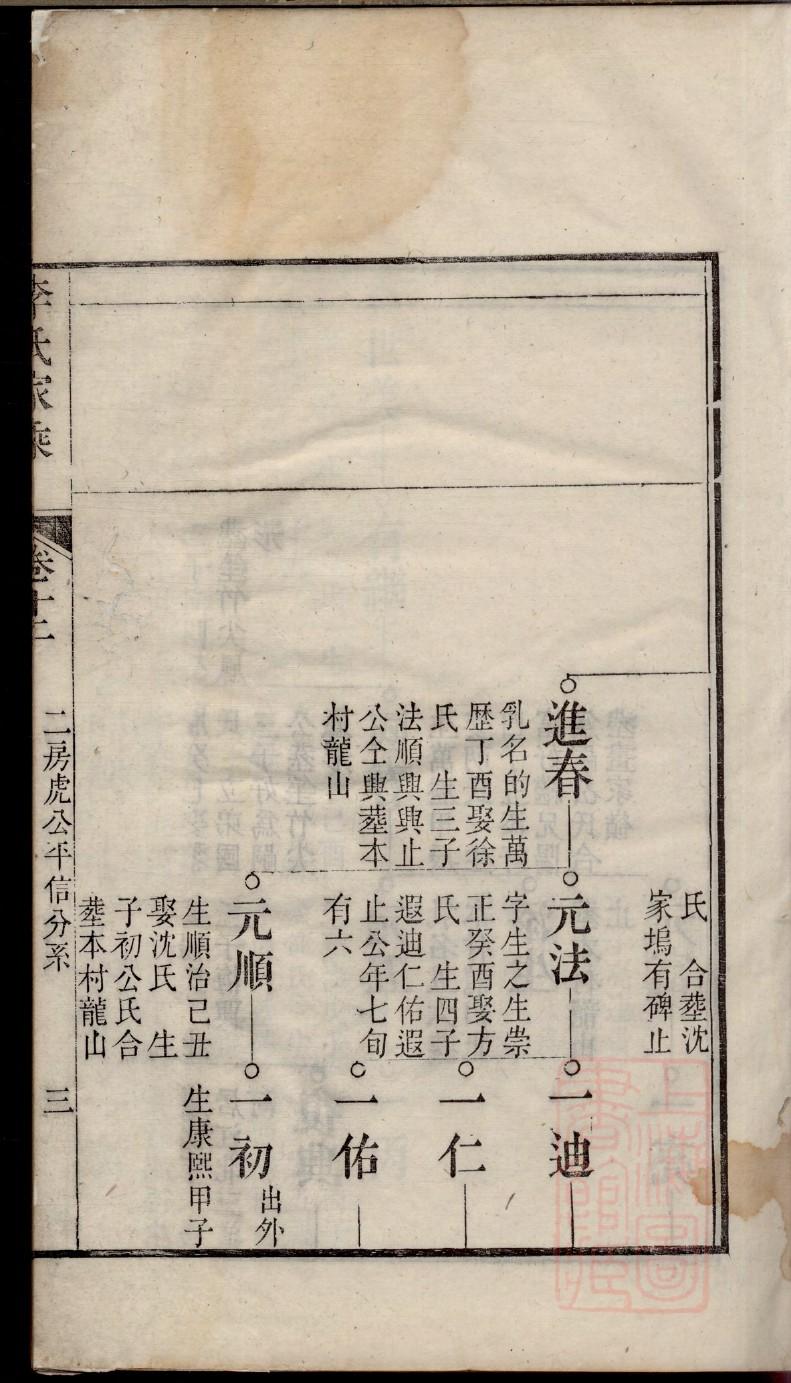 氏　合塟沈
家塢有碑止
進春
乳名的生萬
歷丁酉娶徐
氏　生三子
法順興興止
公仝興塟本
村龍山
元法
字生之生崇
正癸酉娶方
氏　生四子
遐迪仁佑遐
止公年七旬
有六
元順
生順治己丑
娶沈氏　生
子初公氏合
塟本村龍山
一迪
一仁
一佑
一初
出外
生康熙甲子
李氏家乘
卷十二
二房虎公平信分系
三
上海圖書館藏